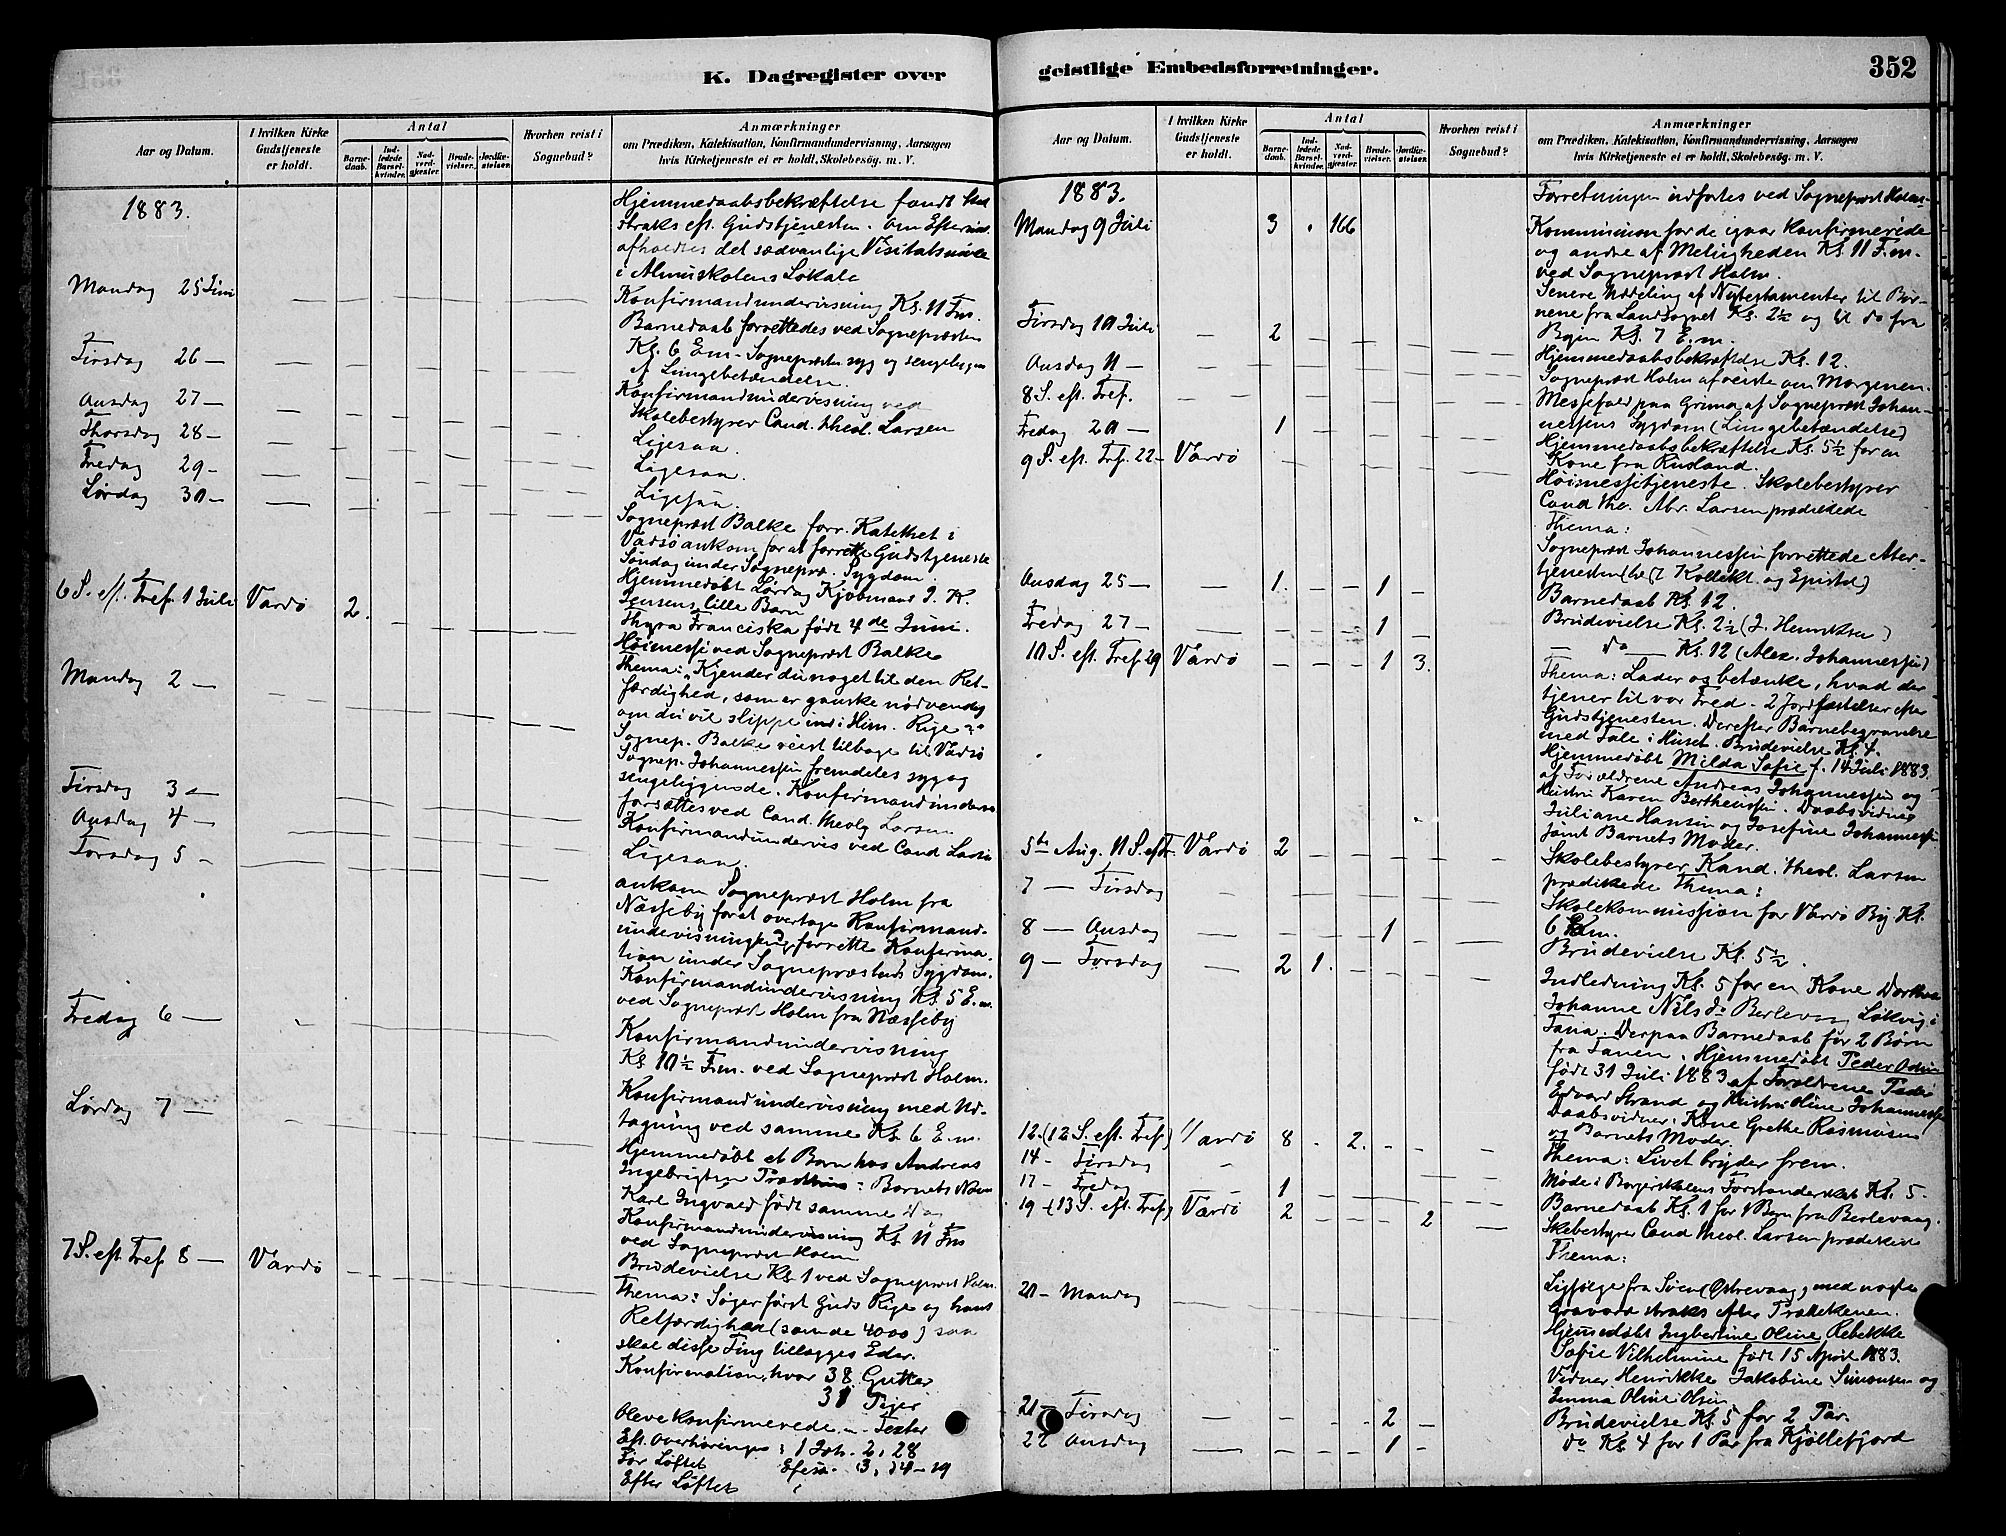 K. Dagregister over
geistlige Embedsforretninger.
352
Aar og Datum.
I hvilken Kirke Gudstjeneste er holdt.
Antal
Barnedaab.
Indledede Barselkvinder.
Nadverdgjester.
Brudevielser.
Jordfæstelser.
Hvorhen reist i Sognebud?
Anmærkninger
om Prædiken, Katekisation, Konfirmandundervisning, Aarsagen
hvis Kirketjeneste ei er holdt, Skolebesøg. m. V.
1883.
Hjemmedaabsbekræftelse fandt Sted
straks eft. Gudstjenesten. Om Efterm.
afholdtes det sædvanlige Visitatsmøde
i Almuskolens Lokale
Mandag 25 Juni
Konfirmandundervisning Kl. 11 Fm.
Barnedaab forrettedes ved Sognepræsten
Tirsdag 26 —
Kl. 6 Em - Sognepræsten syg og sengeliggen
af Lungebetændelse.
Onsdag 27 —
Konfirmandundervisning ved
Skolebestyrer Cand. theol. Larsen
Thorsdag 28 —
Ligesaa.
Fredag 29 -
Ligesaa.
Lørdag 30 —
Ligesaa.
Sognepræst Balke forr. Katekhet i
Vadsø ankom for at forrette Gudstjeneste
Søndag under Sognepræ. Sygdom.
6 S. eft. Tref. 1 Juli Vardø 2.
Hjemmedøbt Lørdag Kjøbmand J. K.
Jensens lille Barn
Thyra Franciska født 4de Juni.
Høimesse ved Sognepræst Balke
Mandag 2 —
Thema: Kjender du noget til den Ret-
færdighed, som er ganske nødvendig
om du vil slippe ind i Him. Rige?
Sognep. Balke reist tilbage til Vadsø
Sognep. Johannessen fremdeles syg og
Tirsdag 3 —
sengeliggende. Konfirmandunderv.
fortsættes ved Cand. theolg Larsen
Onsdag 4 —
Konfirmandundervis ved Cand Larsen
Torsdag 5 -
Ligesaa.
ankom Sognepræst Holm fra
Næsseby for at overtage Konfirmand-
undervisning og forrette Konfirma-
tion under Sognepræstens Sygdom.
Konfirmandundervisning Kl. 5 E.m.
ved Sognepræst Holm fra Næsseby
Fredag 6 —
Konfirmandundervisning
Kl 10½ Fm. ved Sognepræst Holm.
Lørdag 7 —
Konfirmandundervisning med Ud-
tagning ved samme Kl. 6 E.m.
Hjemmedøbt et Barn hos Andreas
Ingebrigtsen : Barnets Navn
Karl Ingvald født samme Dag
Konfirmandundervisning Kl 11 Fm
ved Sognepræst Holm
7 S. eft Tref. 8 — Vardø
Brudevielse Kl. 1 ved Sognepræst Holm.
Thema: Søger først Guds Rige og hans
Retfærdighed (saa
skal disse Ting tillægges Eder.
Konfirmation, hvor 38 Gutter
31 Piger
bleve konfirmerede. — Texter
Eft. Overhøringen: 1 Joh. 2, 28
Før Løftet Efesu. 3, 14-19
Efter Løftet
1883.
Forretningen udførtes ved Sognepræst Holm.
Mandag 9 Juli 3 166
Kommunion for de igaar Konfirmerede
og andre af Menigheden Kl. 11 F.m.
ved Sognepræst Holm.
Senere Uddeling af Nytestamenter til Bør-
nene fra Landsognet Kl. 2½ og til do fra
Tirsdag 10 Juli — 2
Byen Kl. 7 E.m.
Hjemmedaabsbekræftelse Kl. 12.
Onsdag 11 —
Sognepræst Holm afreiste om Morgenen.
8 S. eft. Tref.
Messefald paa Grund af Sognepræst Johan-
nessens Sygdom (Lungebetændelse)
Fredag 20 — 1
Hjemmedaabsbekræftelse Kl. 5½ for en
Kone fra Rusland.
9 S. eft. Tref. 22 - Vardø
Høimessetjeneste. Skolebestyrer
Cand theo. Abr. Larsen prædikede
Thema:
Sognepræst Johannessen forrettede Alter-
tjenesten (Kollekt. og Epistel)
Onsdag 25 — 1. 1
Barnedaab Kl. 12.
Fredag 27 — 1
Brudevielse Kl. 2½ (J. Henriksen)
10 S. eft. Tref. 29 Vardø 1 3.
— do — Kl. 12 (Alex. Johannessen)
Thema: Lader os betænke, hvad der
tjener til vor Fred. - 2 Jordfæstelser efter
Gudstjenesten. Derefter Barnebegravelse
med Tale i Huset. Brudevielse Kl. 4.
Hjemmedøbt Milda Sofie f. 14 Juli 1883.
af Forældrene Andreas Johannessen og
Hustru Karen Bertheussen. Daabsvidner
Juliane Hansen og Josefine Johannessen
samt Barnets Moder.
5te Aug. 11 S. eft Tr. Vardø 2
Skolebestyrer Kand. theol. Larsen
prædikede Thema:
7 — Tirsdag
Skolekommission for Vardø By Kl.
6 Em.
8 — Onsdag 1
Brudevielse Kl. 5½.
9 — Torsdag 2 1.
Indledning Kl. 5 for en Kone Dorthea
Johanne Nilsd. Berlevaag Løkvig i
Tana. Derpaa Barnedaab for 2 Børn
fra Tanen. Hjemmedøbt Peder Odin
født 31 Juli 1883 af Forældrene Peder
Edvard Strand og Hustru Oline Johannessen
Daabsvidner: Kone Grethe Rasmussen
og Barnets Moder.
12. (12 S. eft. Tref.) Vardø 8 2.
Thema: Livet bryder frem.
14 - Tirsdag
Møde i Borgerskolens Forstanderskab Kl. 5.
17 - Fredag 1
Barnedaab Kl. 1 for 1 Barn fra Berlevaag.
19 - (13 S. eft. Tref) Vardø 2 2
Skebestyrer Cand theol. Larsen prædiked
Thema:
20 - Mandag
Ligfølge fra Søen (Østrevaag) med
Gravøl straks efter Prædikenen.
Hjemmedøbt Ingbertine Oline Rebekke
Sofie Vilhelmine født 15 April 1883.
Vidner Henrikke Jakobine Simonsen og
Emma Oline Olsen
21 - Tirsdag 2
Brudevielse Kl. 5 for 2 Par.
22 Onsdag 1
do Kl 4 for 1 Par fra Kjøllefjord